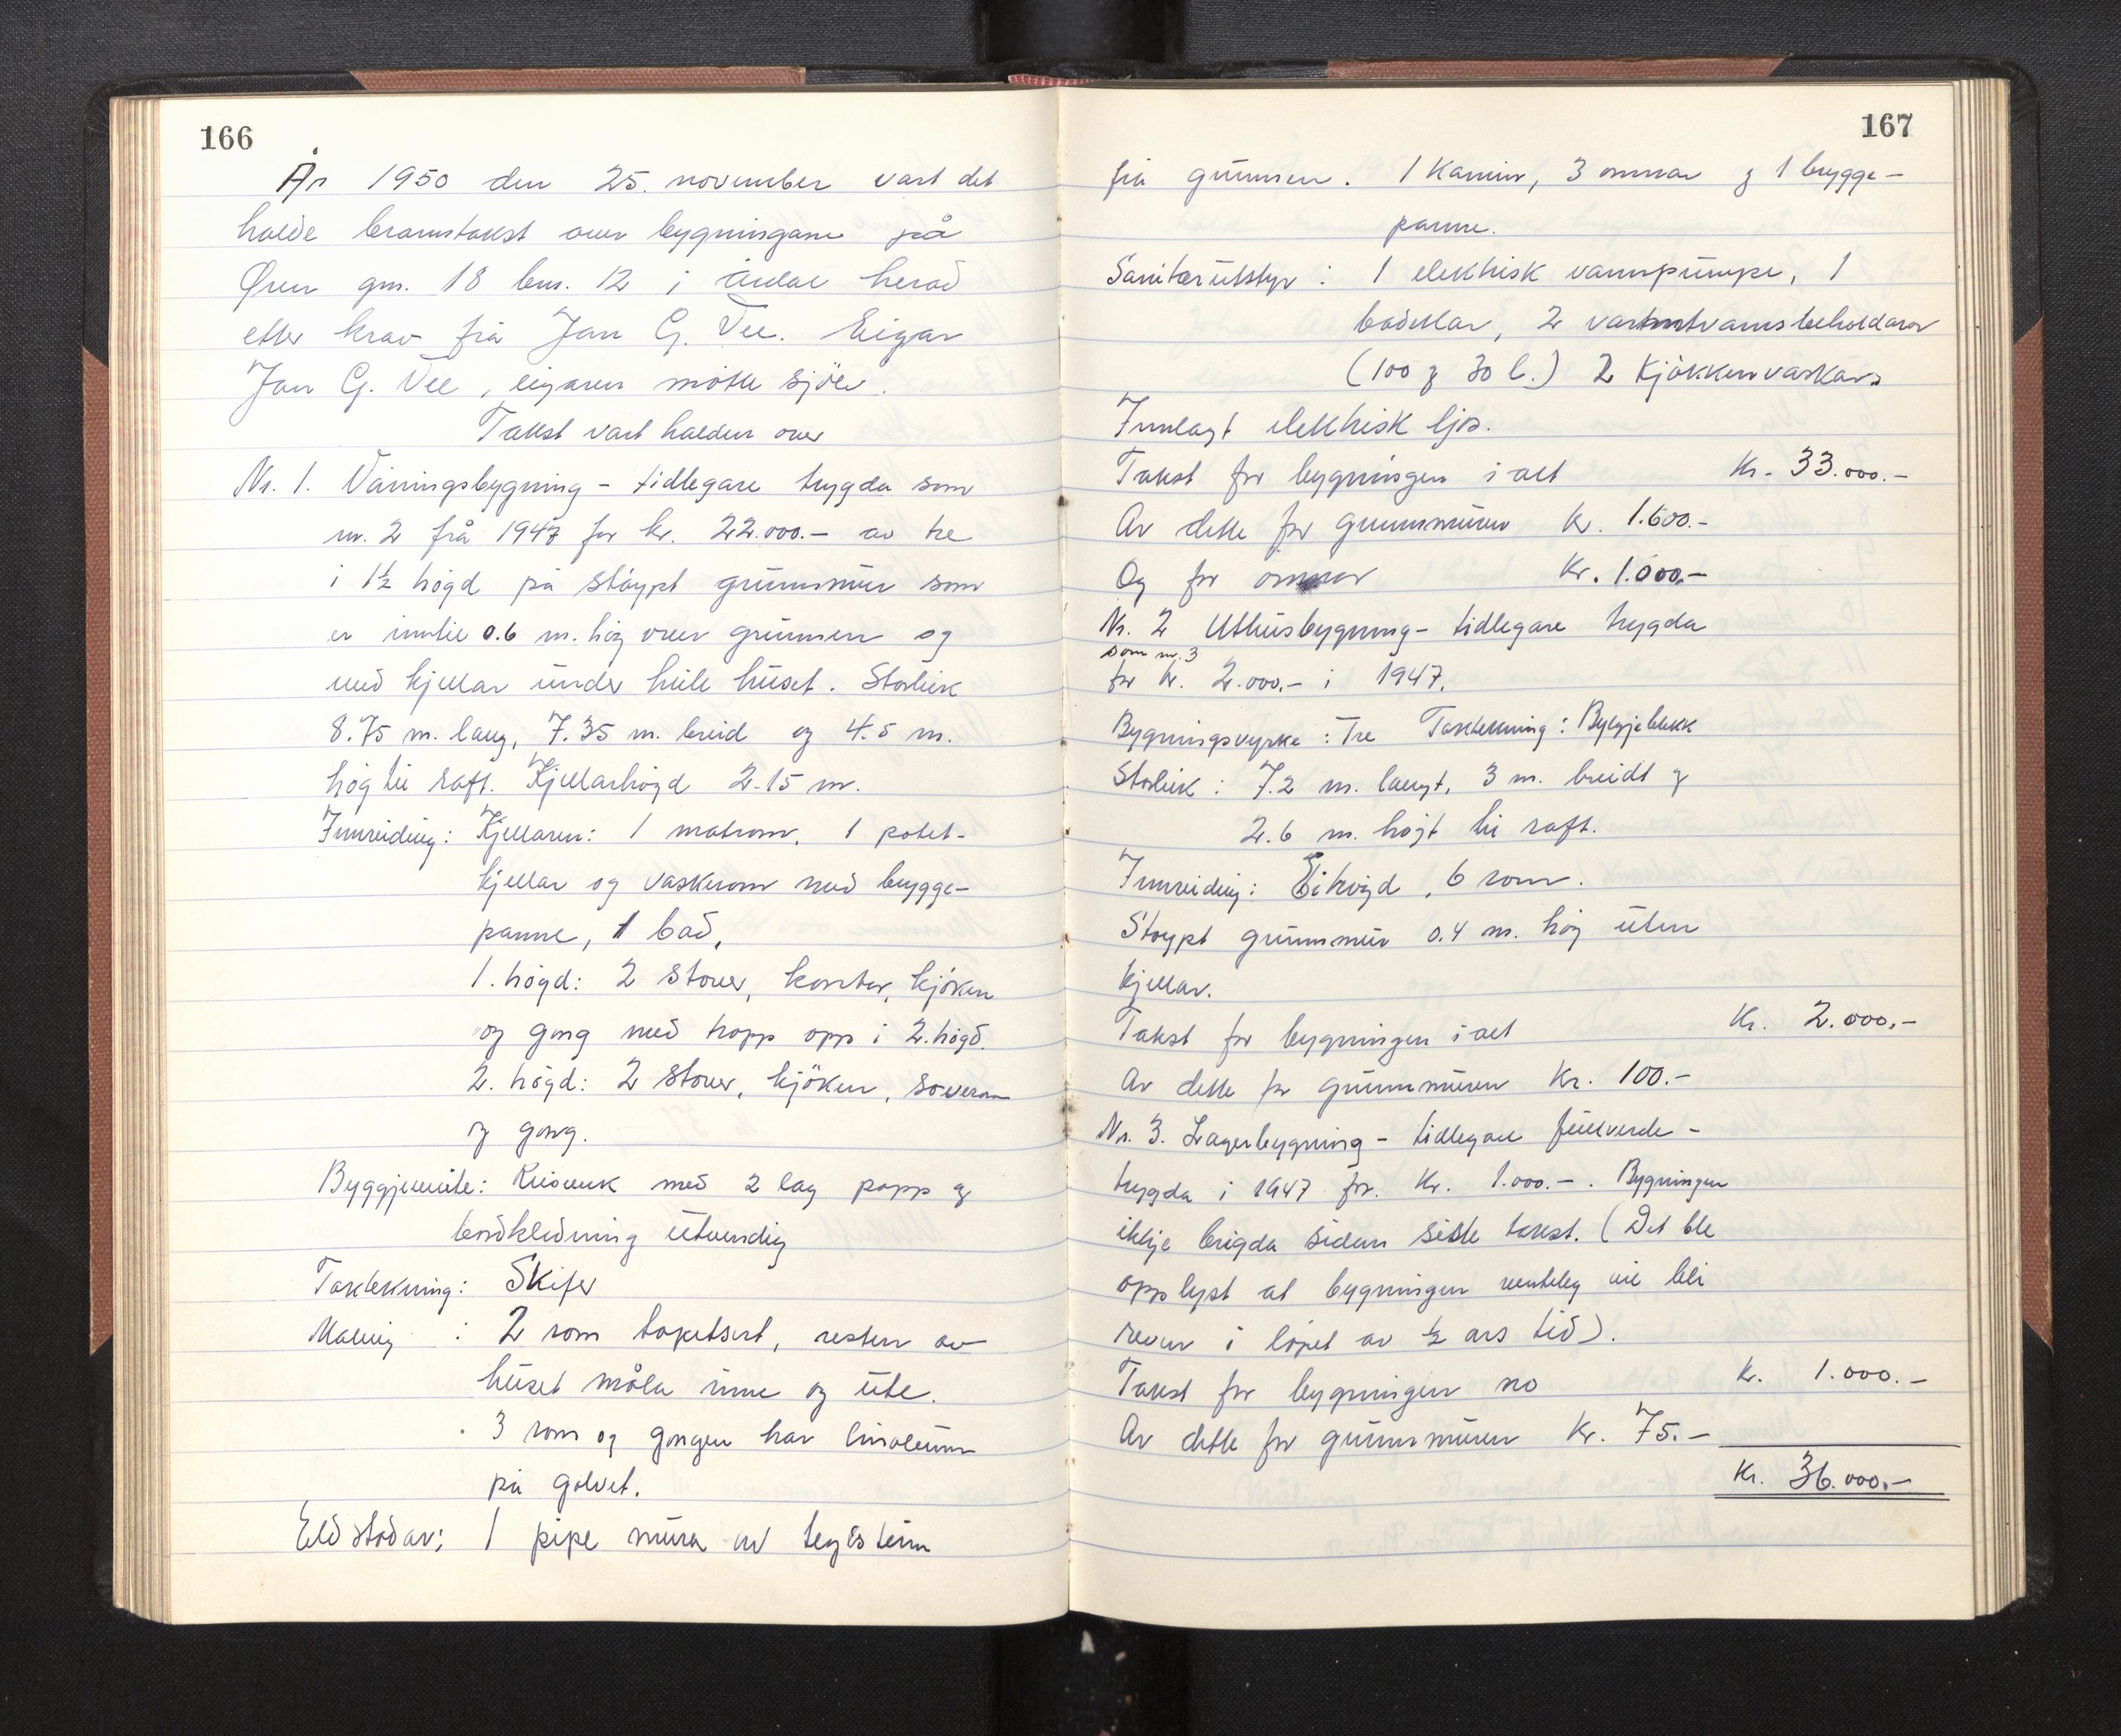 166
År 1950 den 25. november vart det
halde branntakst over bygningane på
Øren gnr. 18 bnr. 12 i Årdal herad
etter krav frå Jan G. Vee. Eigar
Jan G. Vee, eigaren møtte sjölv.
Takst vart halden over
Nr. 1. Våningsbygning - tidlegare trygda som
nr. 2 frå 1947 for kr. 22.000.- av tre
i 1½ högd på stöypt grunnmur som
er inntil 0.6 m. hög over grunnen og
med kjellar under heile huset. Storleik
8.75 m. lang, 7.35 m. breid og 4.5 m.
hög til raft. Kjellarhögd 2.15 m.
Innreiding: Kjellaren: 1 matrom, 1 potet-
kjellar og vaskerom med brygge-
panne, 1 bad,
1. högd: 2 stover, kontor, kjöken
og gong med tropp opp i 2. högd.
2. högd: 2 stover, kjöken, soverom
og gong.
Byggjemåte: Reisverk med 2 lag papp og
bordkledning utvendig
Taktekning: Skifer
Maling : 2 rom tapetsert, resten av
huset måla inne og ute.
3 rom og gongen har linoleum
på golvet.
Eldstadar: 1 pipe mura av teglstein
167
frå grunnen. 1 Kamin, 3 omnar og 1 brygge-
panne.
Sanitærutstyr : 1 elektrisk vannpumpe, 1
badekar, 2 varmtvannsbeholdarar
(100 og 30 l.) 2 Kjökkenvaskar
Innlagt elektrisk ljos.
Takst for bygningen i alt Kr. 33.000.-
Av dette for grunnmuren Kr. 1.600.-
Og for omnar Kr. 1.000.-
Nr. 2 Uthusbygning - tidlegare trygda
som nr. 3
for kr. 2.000.- i 1947.
Bygningsvyrke : Tre Taktekning : Bylgjeblekk
Storleik : 7.2 m. langt, 3 m. breidt og
2.6 m. högt til raft.
Innreiding: Ei högd, 6 rom.
Stöypt grunnmur 0.4 m. hög uten
kjellar.
Takst for bygningen i alt Kr. 2.000.-
Av dette for grunnmuren Kr. 100.-
Nr. 3. Lagerbygning - tidlegare fullverde-
trygda i 1947 for Kr. 1.000.-. Bygningen
ikkje brigda sidan siste takst. (Det ble
opplyst at bygningen venteleg vil bli
reven i löpet av ½ års tid).
Takst for bygningen no Kr. 1.000.-
Av dette for grunnmuren Kr. 75.-
Kr. 36.000.-